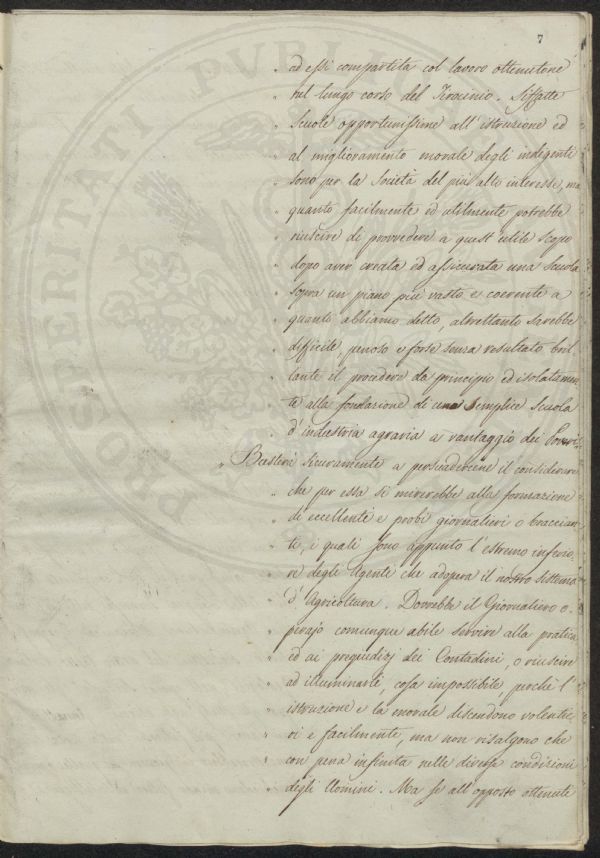 7
„ ad essi compartita col lavoro ottenutone
„ nel lungo corso del Tirocinio. Siffatte
„ Scuole opportunissime all' istruzione ed
„ al miglioramento morale degli indigenti
„ sono per la Società del più alto interesse, ma
„ quanto facilmente ed utilmente potrebbe
„ riuscire di provvedere a quest' utile scopo
„ dopo aver creata ed assicurata una Scuola
„ sopra un piano più vasto e coerente a
„ quanto abbiamo detto, altrettanto sarebbe
„ difficile, penoso e forse senza resultato bril-
„ lante il procedere da principio ed isolatamen-
„ te alla fondazione di una Semplice Scuola
„ d' industria agraria a vantaggio dei Poveri.
„ Basterà sicuramente a persuadercene il considerare
„ che per essa si mirerebbe alla formazione
„ di eccellenti e probi giornalieri o braccian-
„ ti, i quali sono appunto l' estremo inferio-
„ re degli Agenti che adopera il nostro sistema
„ d' Agricoltura. Dovrebbe il Giornaliero o-
„ perajo comunque abile servire alla pratica
„ ed ai pregiudizj dei Contadini, o riuscire
„ ad illuminarli, cosa impossibile, perchè l'
„ istruzione e la morale discendono volentie-
„ ri e facilmente, ma non risalgono che
„ con pena infinita nelle diverse condizioni
„ degli Uomini. Ma se all' opposto ottenute
PROSPERITATI PUBL